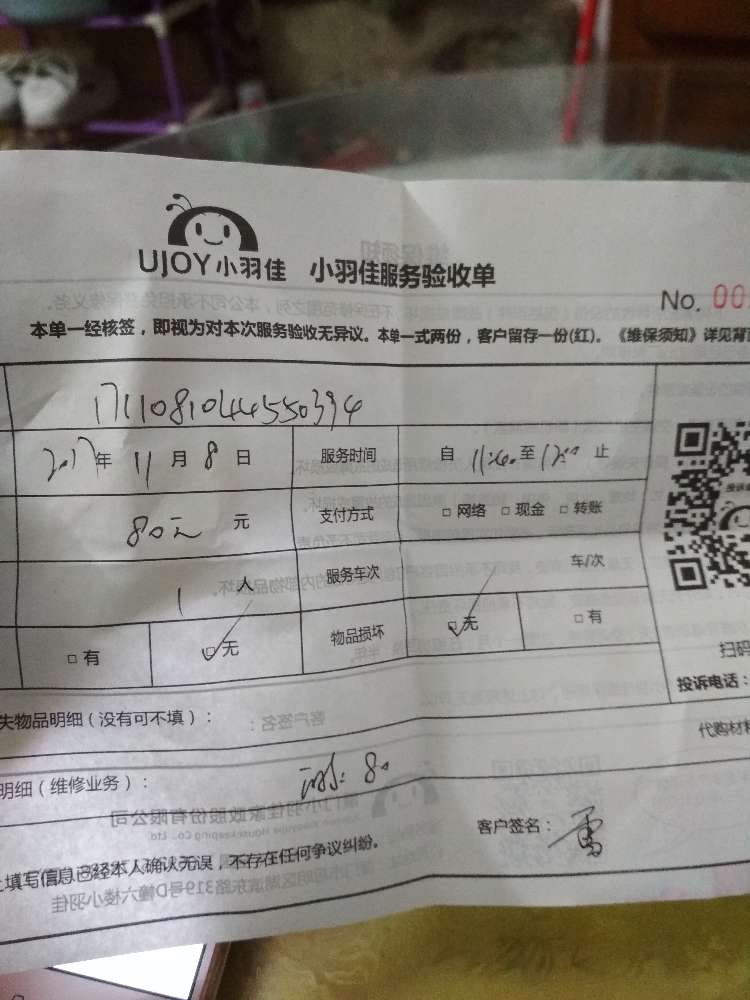 UJOY小羽佳 小羽佳服务验收单
No. 00
本单一经核签，即视为对本次服务验收无异议。本单一式两份，客户留存一份(红)。《维保须知》详见背
1711081044550394
2017年 11月 8日 服务时间 自 11:40至12:00止
80元 元 支付方式 □网络 □现金 □转账
1 人 服务车次 车/次
□有 □无 物品损坏 □无 □有
扫码
投诉电话：
失物品明细（没有可不填）：
代购材料
明细（维修业务）： 80
客户签名： 雷
填写信息已经本人确认无误，不存在任何争议纠纷。